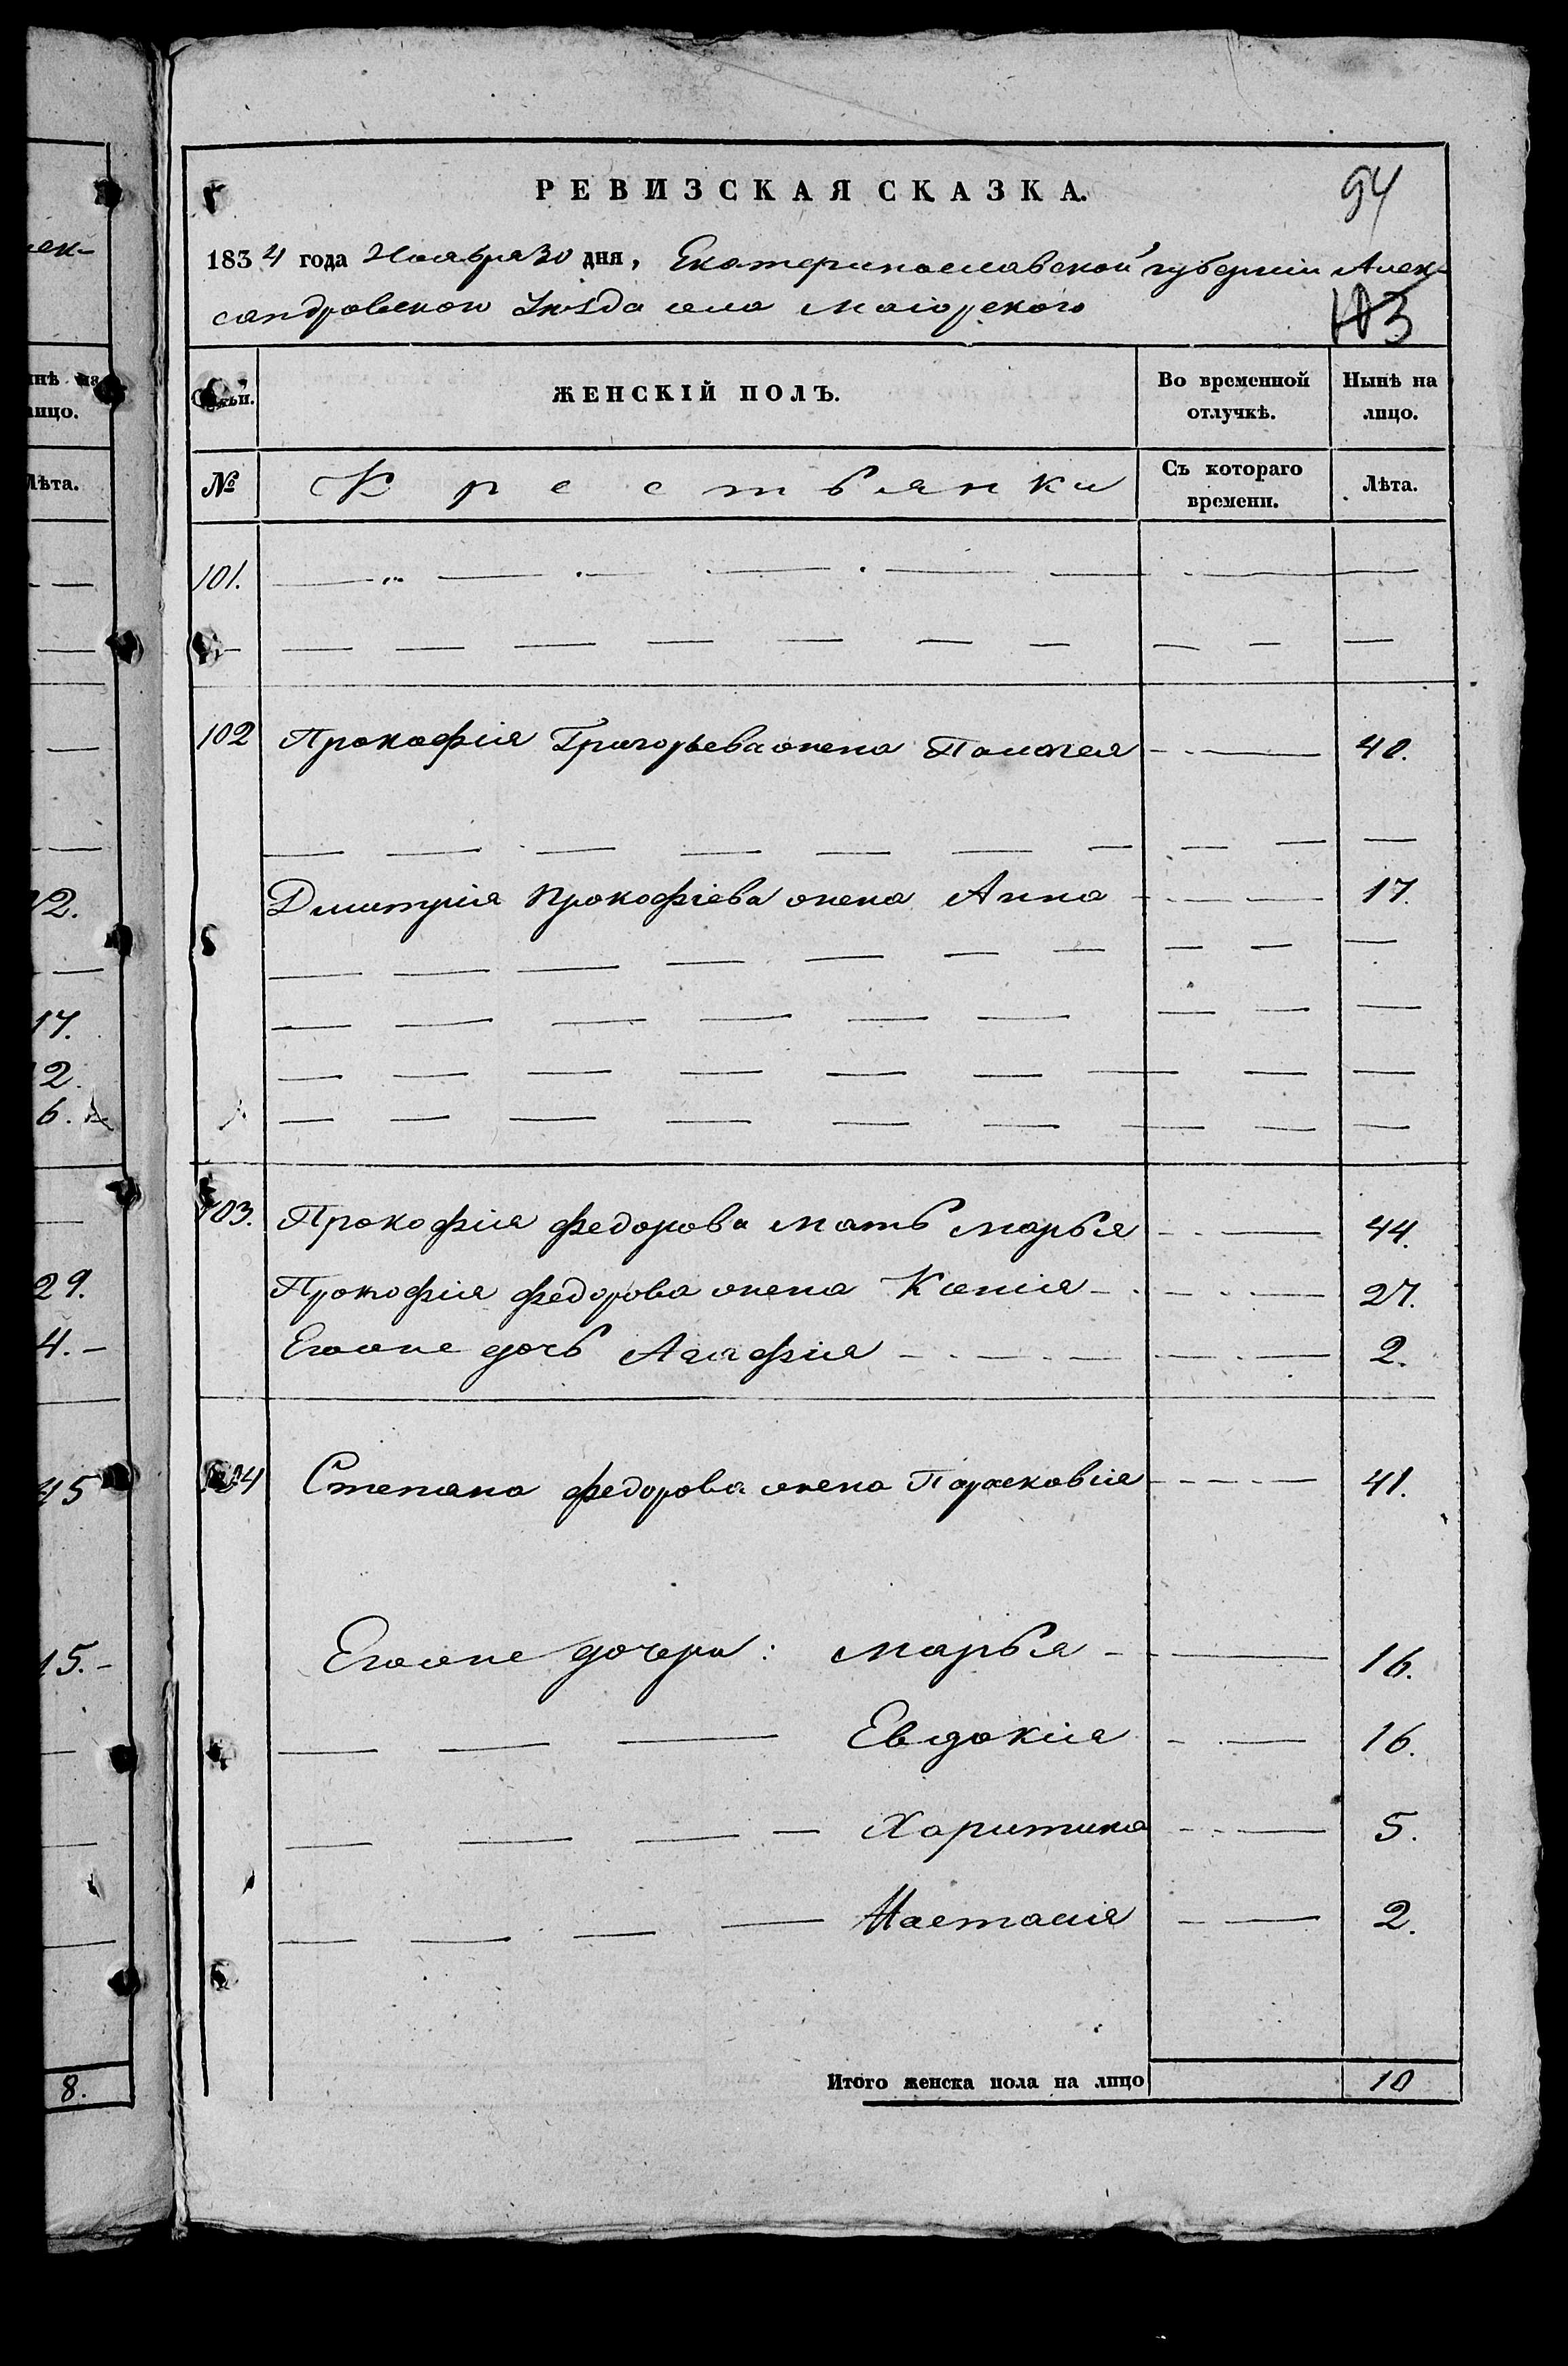 РЕВИЗСКАЯ СКАЗКА.
94
1834 года Ноября 30 дня, Екатеринославской губернии Алек-
сандровского Уѣзда села Маіорского
103
Семьи. ЖЕНСКІЙ ПОЛЪ. Во временной отлучкѣ. Нынѣ на лицо.
№ Крестьянки Съ котораго времени. Лѣта.
101.
102 Прокофія Григорьева жена Палагея 40.
Дмитрія Прокофіева жена Анна 17.
103. Прокофія Федорова мать Марья 44.
Прокофія Федорова жена Ксенія 27.
Егоже дочь Агафія 2.
104 Степана Федорова жена Парасковія 41.
Егоже дочери: Марья 16.
Евдокія 16.
Харитина 5.
Настасія 2.
Итого женска пола на лицо 10
ек-
нѣ на
лицо.
Лѣта.
2.
17.
2.
6.
29.
4.-
45
15.-
8.